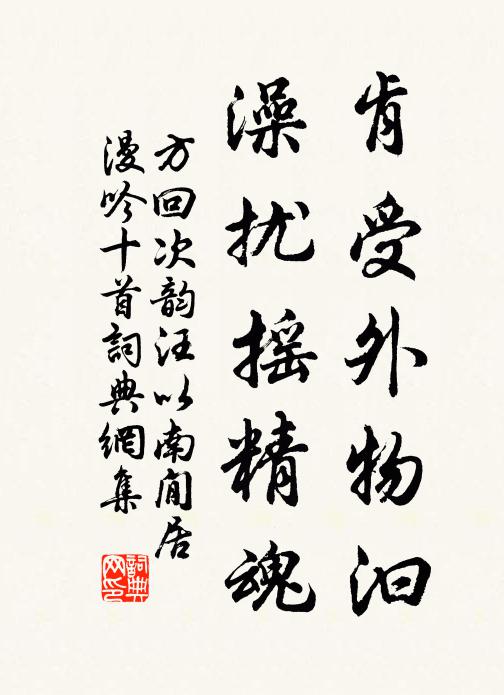 肯受外物汩
澡扰摇精魂
方回次韵汪以南閒居
漫吟十首詞典網集
詞典
网印